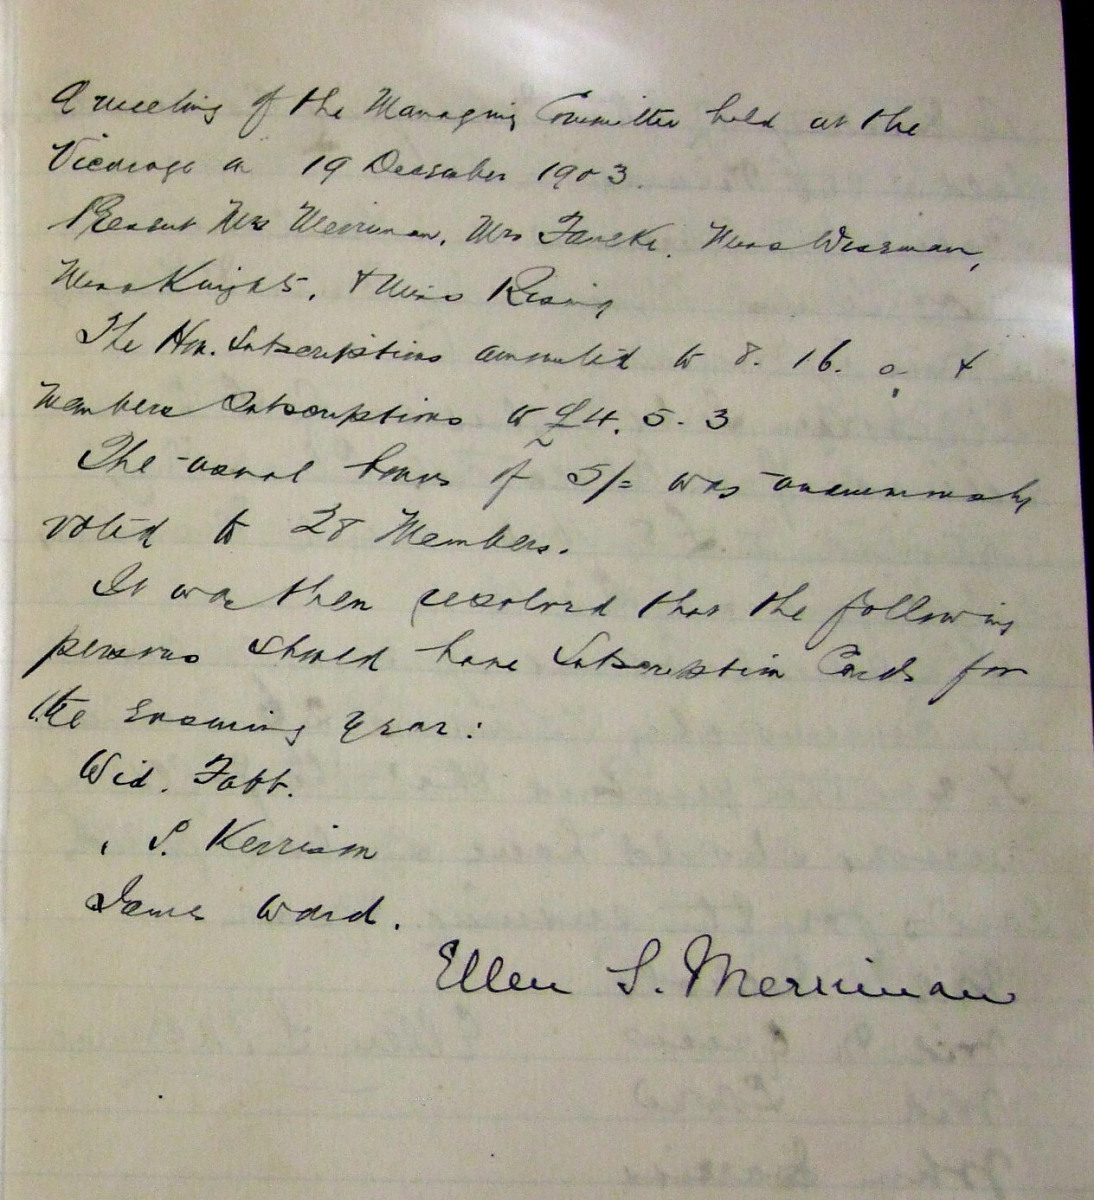 A meeting of the Managing Committee held at the
Vicarage on 19 December 1903.
Present Mrs Merriman, Mrs Fancke, Miss Wiseman,
Miss Knights, & Miss Rising
The Hon. Subscriptions amounted to 8. 16. 0. &
Members Subscriptions to £4. 5. 3
The usual bonus of 5/= was unanimously
voted to 28 Members.
It was then resolved that the following
persons should have Subscription Cards for
the ensuing year:
Wid. Tabb.
, S. Kerrison
James Ward.
Ellen S. Merriman